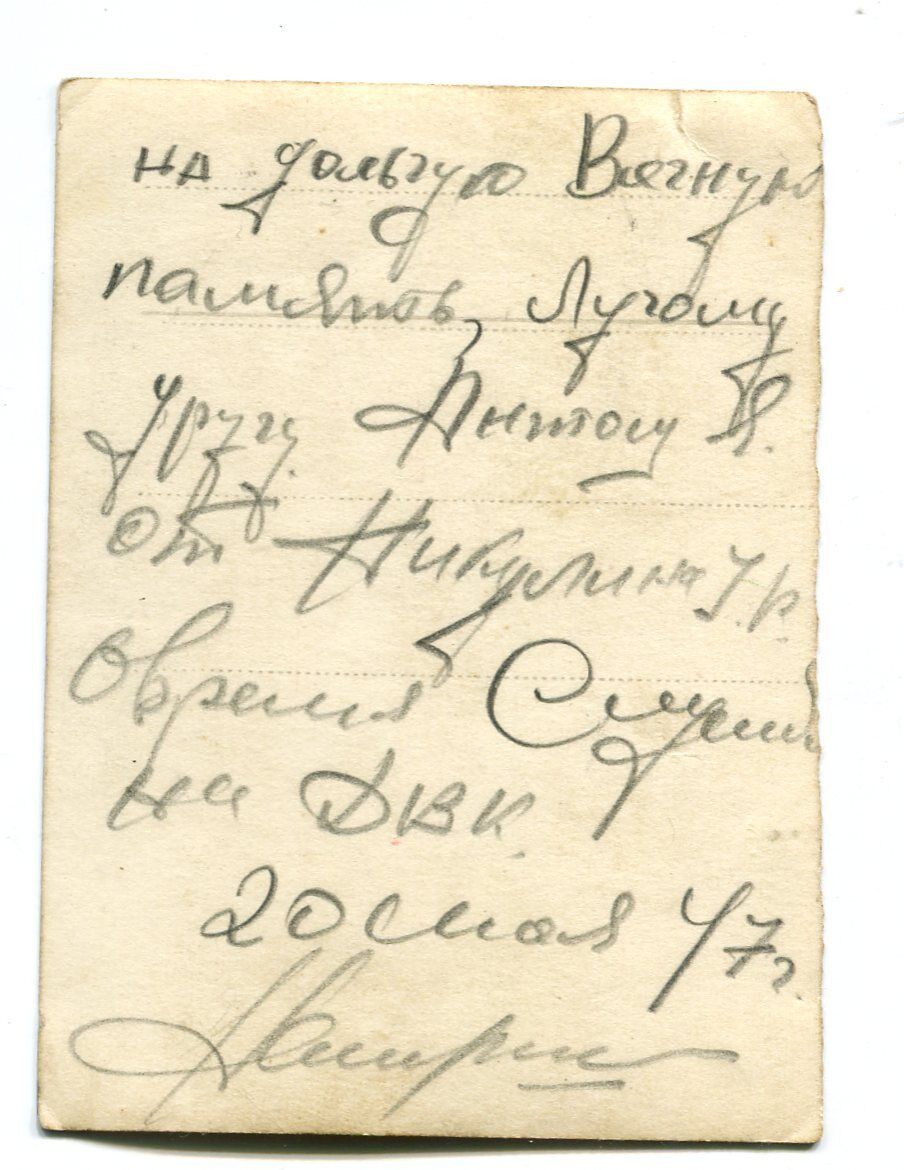 на дольгую Вячную
память, Лучому
другу. Антону Я.
от Никулина У.Р.
Время Служ
на ДВК.
20 мая 47 г.